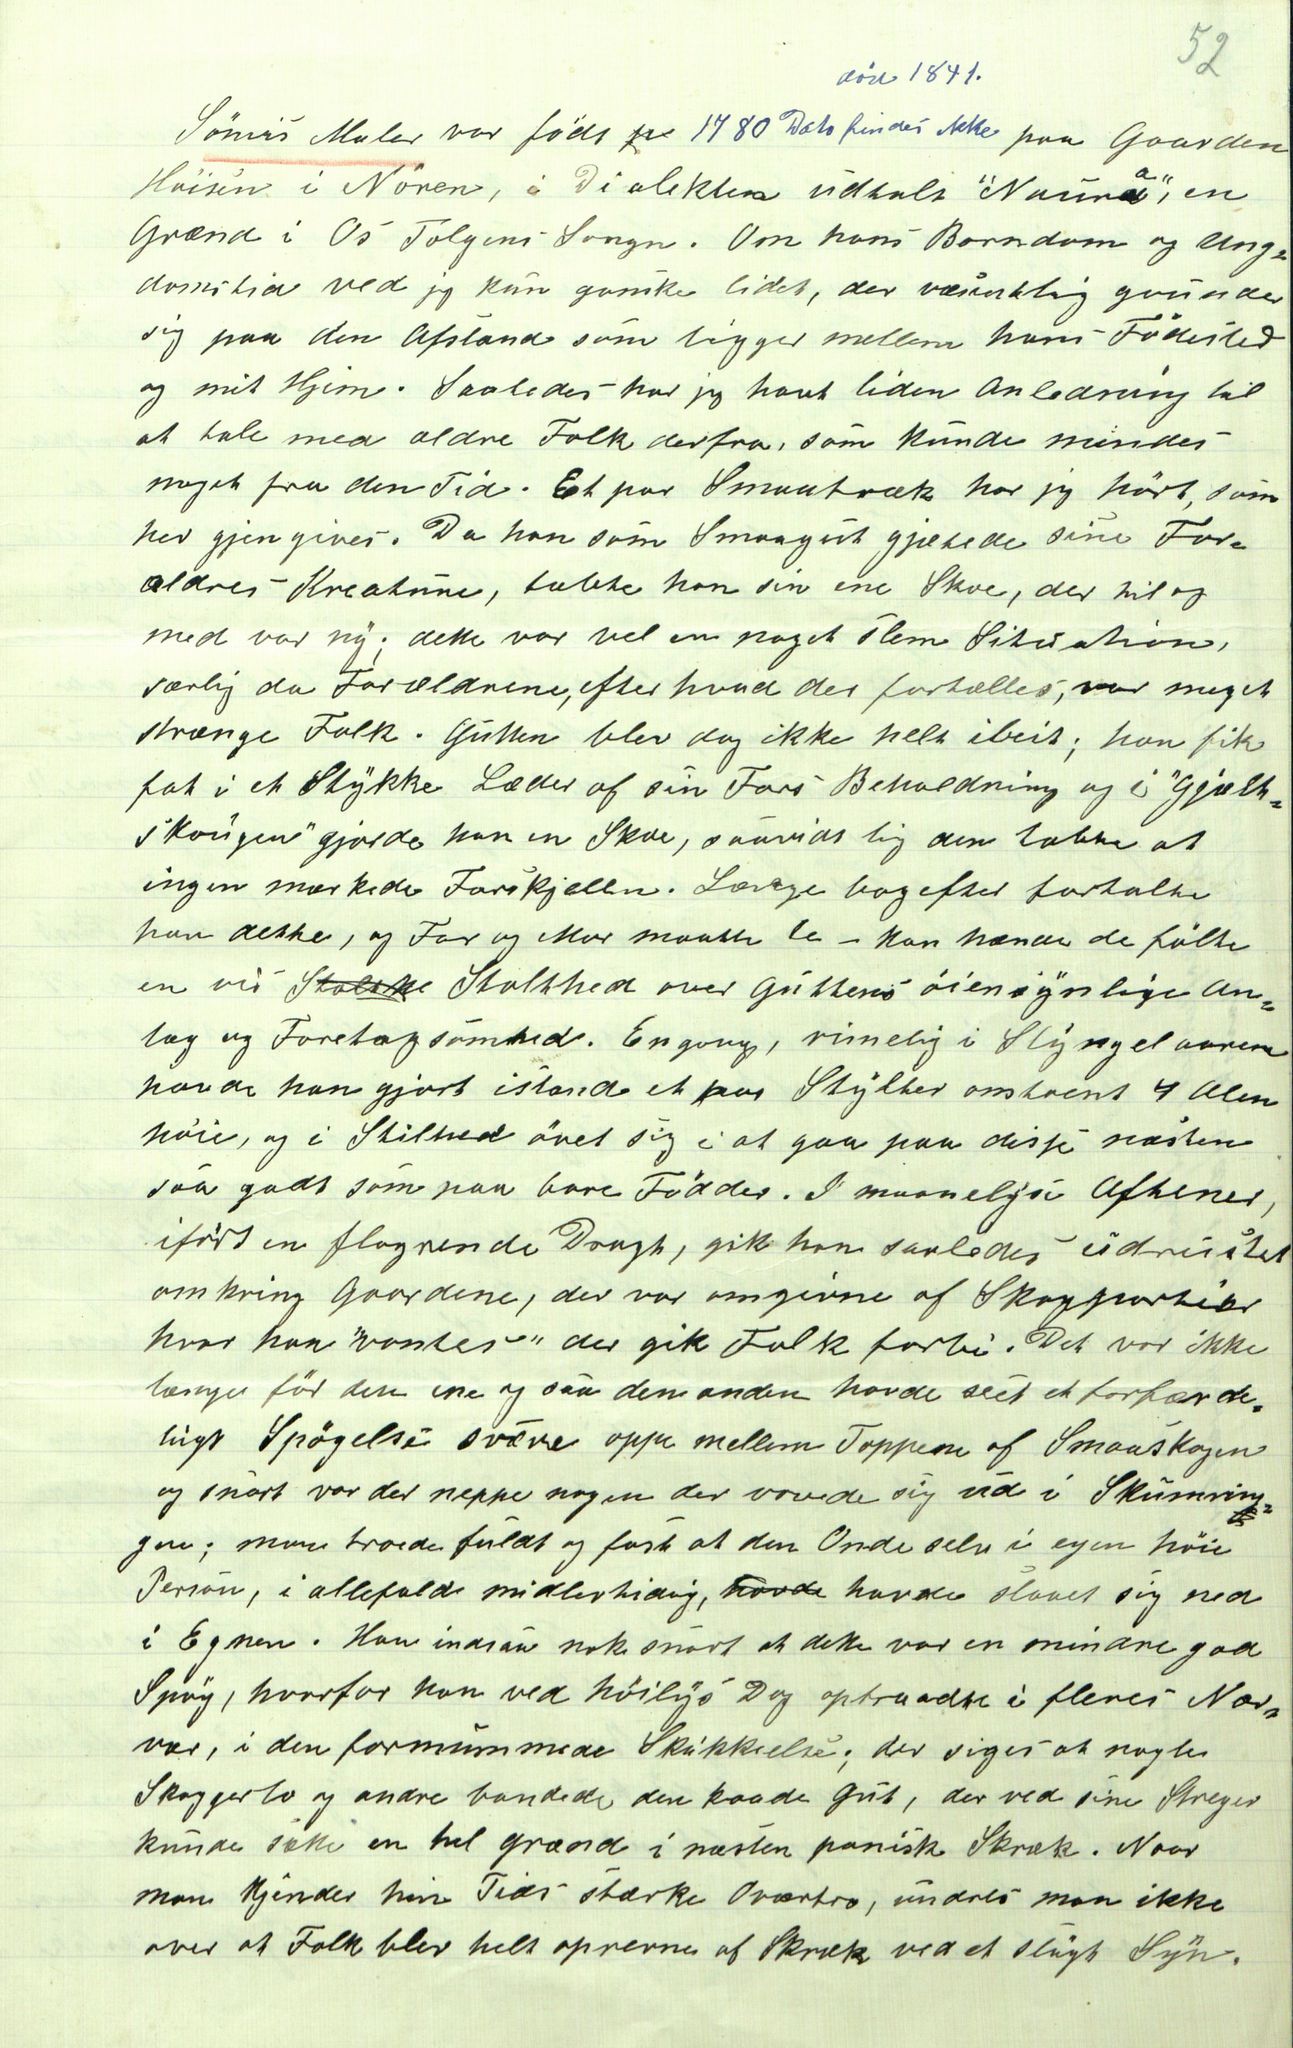 52
död 1841.
Sömis Maler var födt 1780 Dato findes ikke paa Gaarden
Höisen i Nören, i Dialekten udtalt "Naurå", en
Grænd i Os Tolgens Sogn. Om hans Barndom og Ung-
domstid ved jeg kun ganske lidet, der væsentlig grunder
sig paa den Afstand som ligger mellem hans Födested
og mit Hjem. Saaledes har jeg havt liden Anledning til
at tale med ældre Folk derfra, som kunde mindes
noget fra den Tid. Et par Smaatræk har jeg hört, som
her gjengives. Da han som Smaagut gjætede sine For-
ældres Kreature, tabte han sin ene Skoe, der til og
med var ny; dette var vel en noget slem Situation,
særlig da Forældrene, efter hvad der fortælles, var meget
strænge Folk. Gutten blev dog ikke helt ibeit; han fik
fat i et Stykke Læder af sin Fars Beholdning og i "Gjælt-
skougen" gjorde han en Skoe, saavidt lig den tabte at
ingen mærkede Forskjellen. Længe bagefter fortalte
han dette, og Far og Mor maatte le – kan hænde de fölte
en vis Stolthed over Guttens öiensynlige An-
læg og Foretagsomhed. Engang, rimelig i Slyngelaarene
havde han gjort istand et par Stylter omtrent 4 Alen
höie, og i Stilhed övet sig i at gaa paa disse næsten
saa godt som paa bare Födder. I maanelyse Aftener,
iført en flagrende Dragt, gik han saaledes udrustet
omkring Gaardene, der var omgivne af Skogpartier
hvor han "vontes" der gik Folk forbi. Det var ikke
længe för den ene og saa den anden havde seet et forfærde-
ligt Spögelse svæve oppe mellem Toppene af Smaaskogen
og snart var der neppe nogen der vovede sig ud i Skumrin-
gen; man troede fuldt og fast at den Onde selv i egen höie
Person, i allefald midlertidig, havde havde slaaet sig ned
i Egnen. Han indsaa nok snart at dette var en mindre god
Spög, hvorfor han ved höilys Dag optraadte i fleres Nær-
vær, i den formummede Skikkelse; der siges at nogle
Skoggerlo og andre bandede den kaade Gut, der ved sine Streger
kunde sætte en hel Grænd i næsten panisk Skræk. Naar
man kjender hin Tids stærke Overtro, undres man ikke
over at Folk blev helt oprevne af Skræk ved et sligt Syn.